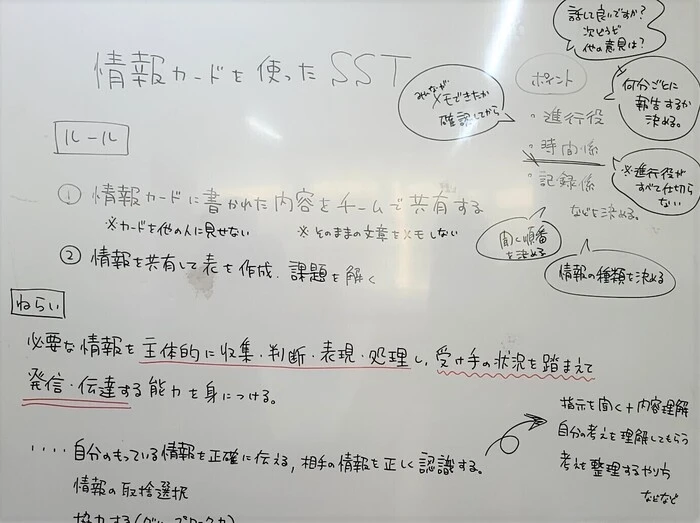 情報カードを使ったSST
話して良いですか?
次どうぞ
他の意見は?
ポイント
・進行役
・時間係
・記録係
などを決める。
みんなが
メモできたか
確認してから
何分ごとに
報告するか
決める。
※進行役が
すべて仕切らない
聞く順番
を決める
情報の種類を決める
ルール
① 情報カードに書かれた内容をチームで共有する
※カードを他の人に見せない ※そのままの文章をメモしない
② 情報を共有して表を作成.課題を解く
ねらい
必要な情報を主体的に収集・判断・表現・処理し、受け手の状況を踏まえて
発信・伝達する能力を身につける。
‥‥自分のもっている情報を正確に伝える,相手の情報を正しく認識する。
情報の取捨選択
協力する(グループワーク力)
指示を聞く+内容理解
自分の考えを理解してもらう
考えを整理するやり方
などなど